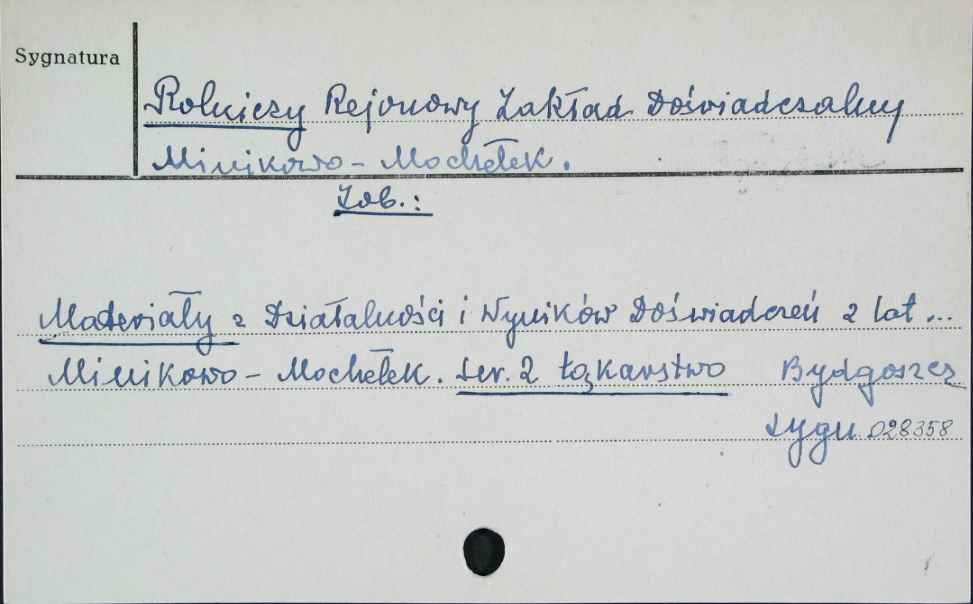 Sygnatura
Rolniczy Rejonowy Zakład Doświadczalny
Minikowo - Mochełek.
Zob.:
Materiały z Działalności i Wyników Doświadczeń z lat ...
Minikowo - Mochełek. Ser. 2 Łąkarstwo Bydgoszcz
Sygn 028358